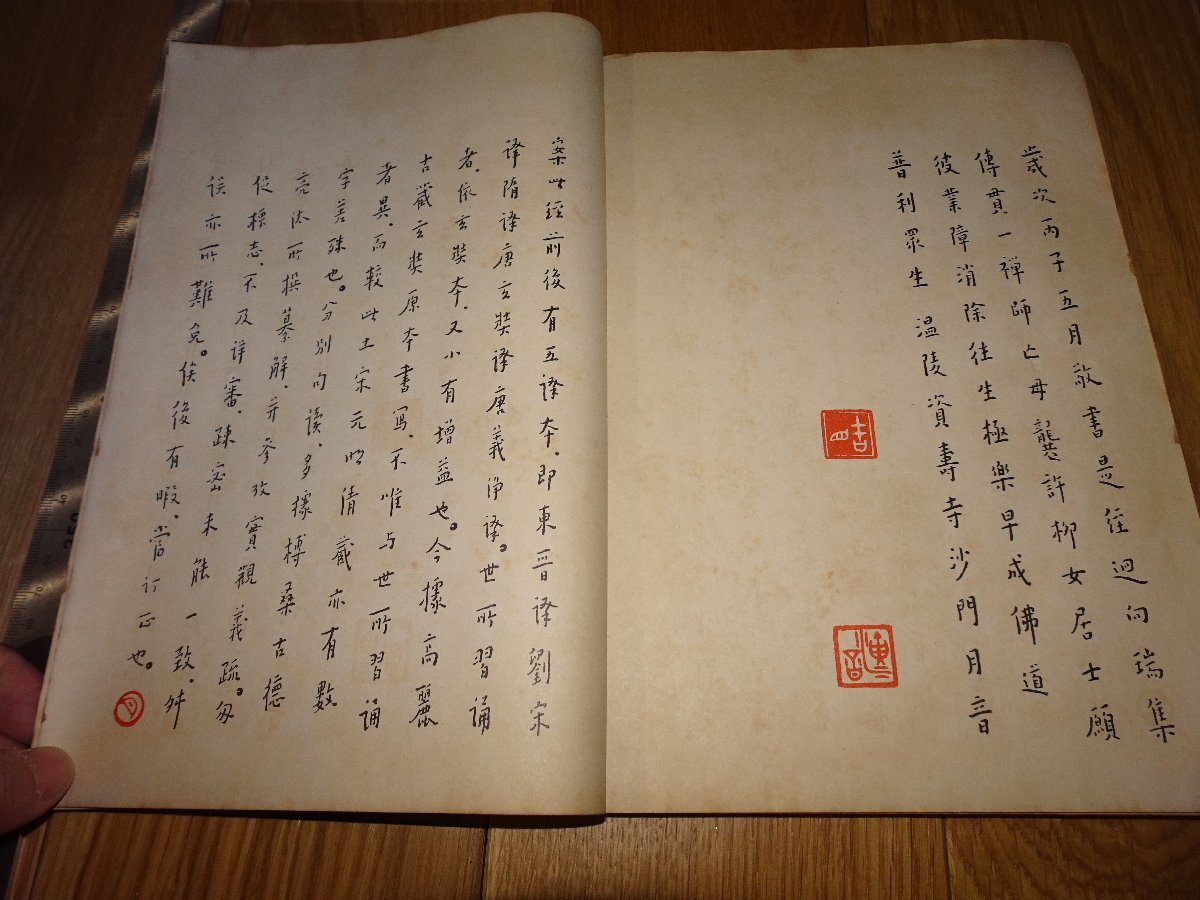 歲次丙子五月敬書是經迴向瑞集
傳貫一禪師亡母龔許柳女居士願
彼業障消除往生極樂早成佛道
普利眾生 温陵資壽寺沙門月音
案此經前後有五譯本、即東晉譯劉宋
譯隋譯唐玄奘譯唐義淨譯。世所習誦
者、依玄奘本、又小有增益也。今據高麗
古藏玄奘原本書寫、不唯与世所習誦
者異、而較此土宋元明清藏亦有數
字差殊也。分別句讀、多據榑桑古德
亮汰所撰纂解、并參攷實觀義疏。匆
促標志、不及詳審、疎密未能一致、舛
誤亦所難免。俟後有暇、當訂正也。